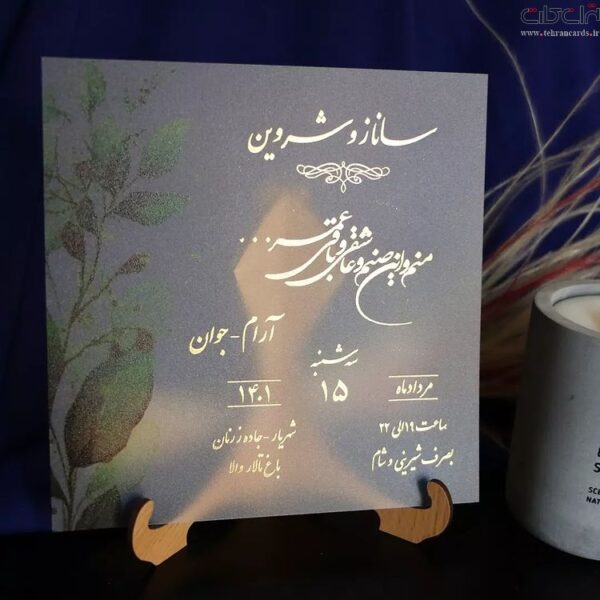 تهران کارت
www.tehrancards.ir
ساناز و شروین
منم و این صنم و عاشقی و باقی عمر ...
آرام - جوان
سه شنبه
مرداد ماه ۱۵ ۱۴۰۱
ساعت ۱۹ الی ۲۲
بصرف شیرینی و شام
شهریار - جاده زرنان
باغ تالار والا